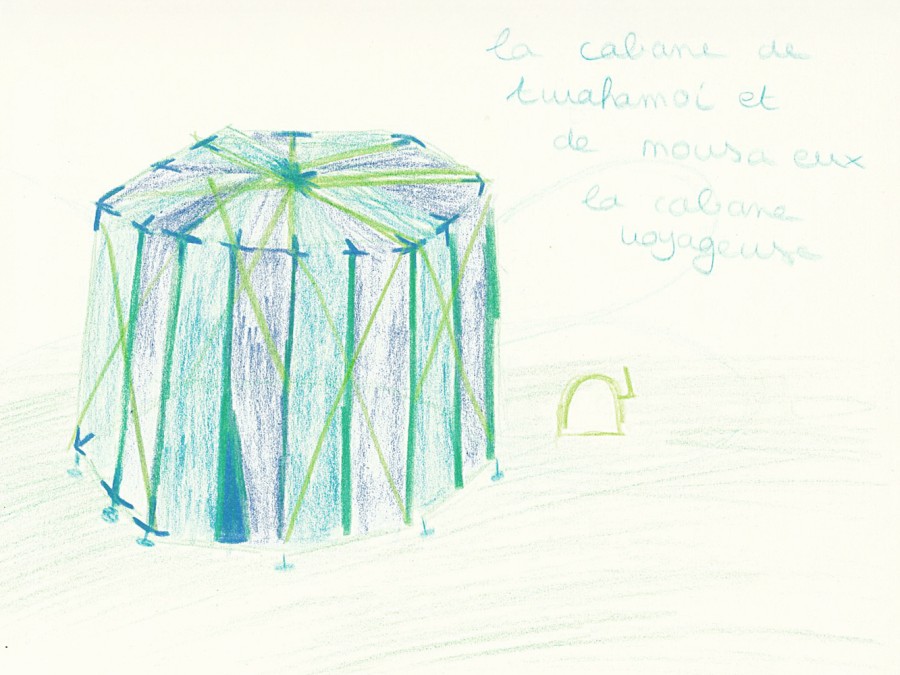 la cabane de
twahamoi et
de mousa eux
la cabane
voyageuse